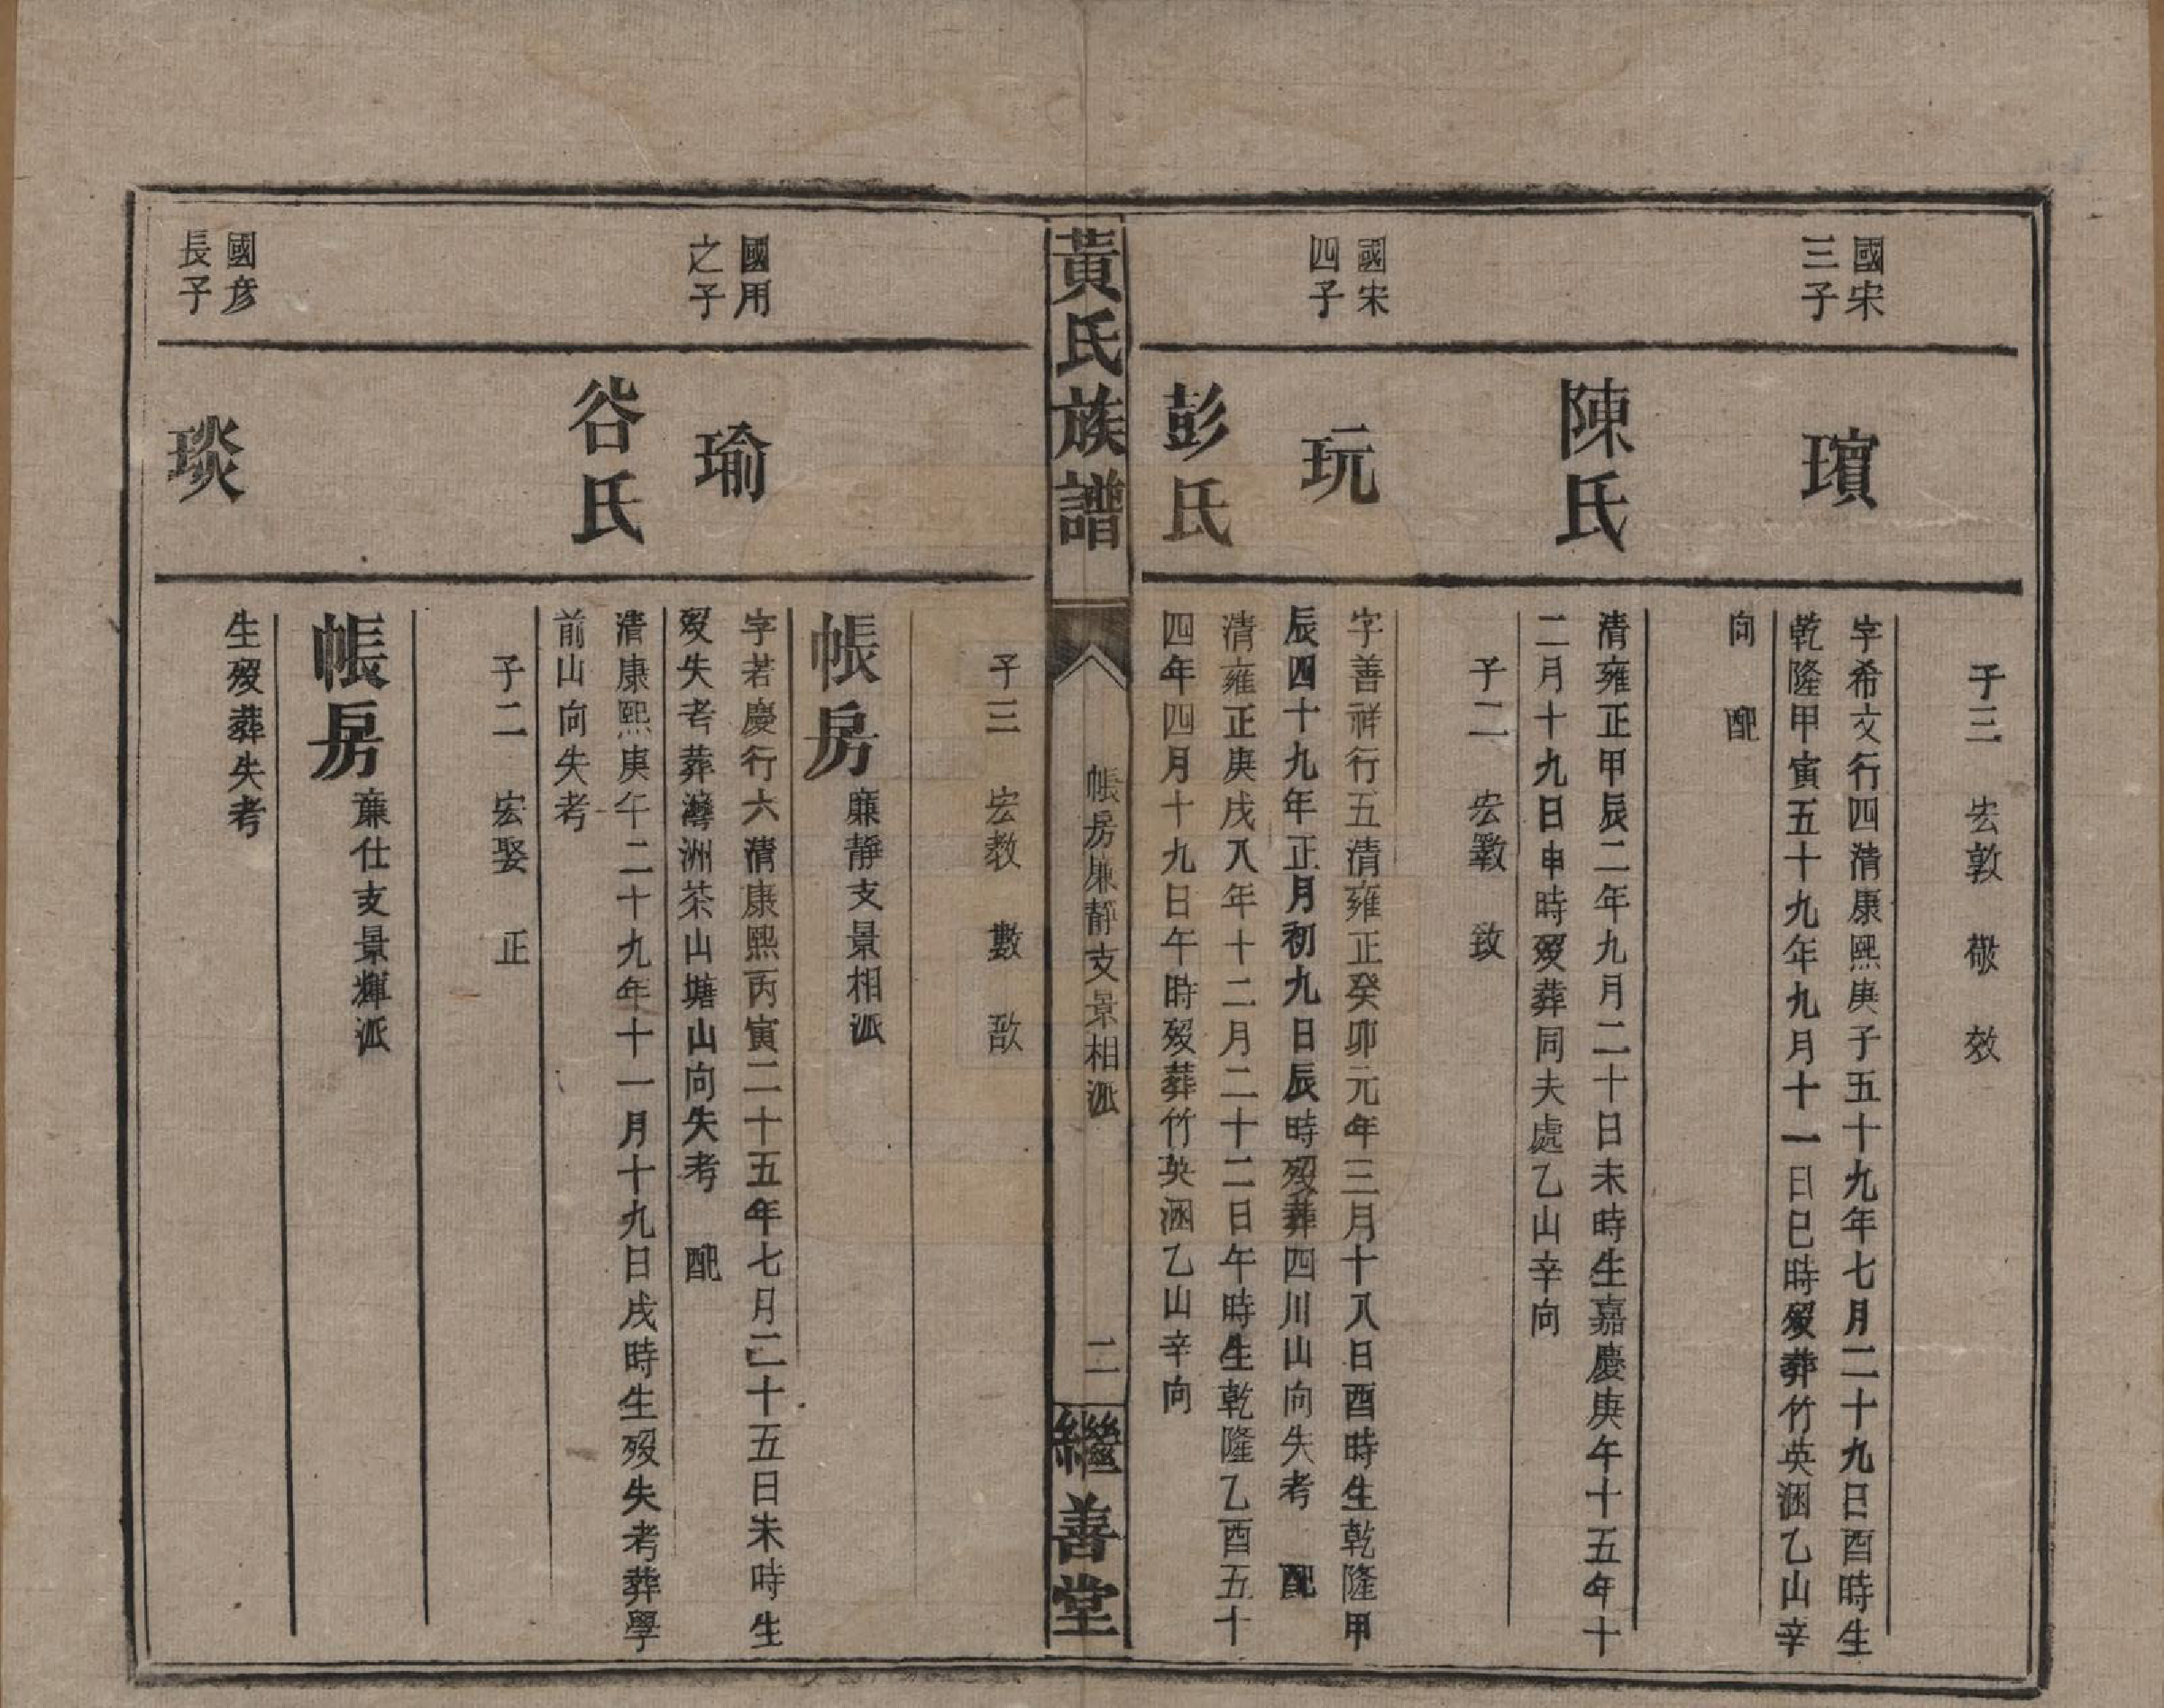 子三 宏敦 敬 效
國宋
三子
璸
字希文行四清康熙庚子五十九年七月二十九日酉時生
乾隆甲寅五十九年九月十一日巳時歿葬竹英涃乙山辛
向 配
陳氏
清雍正甲辰二年九月二十日未時生嘉慶庚午十五年十
二月十九日申時歿葬同夫處乙山辛向
子二 宏斁 致
國宋
四子
玩
字善祥行五清雍正癸卯元年三月十八日酉時生乾隆甲
辰四十九年正月初九日辰時歿葬四川山向失考 配
彭氏
清雍正庚戌八年十二月二十二日午時生乾隆乙酉五十
四年四月十九日午時歿葬竹英涃乙山辛向
黃氏族譜
帳房廉靜支景相派
二
繼善堂
子三 宏教 數 敔
帳房廉靜支景相派
國用
之子
瑜
字若慶行六清康熙丙寅二十五年七月二十五日未時生
歿失考葬灣洲茶山塘山向失考 配
谷氏
清康熙庚午二十九年十一月十九日戌時生歿失考葬學
前山向失考
子二 宏娶 正
帳房廉仕支景輝派
國彦
長子
琰
生歿葬失考